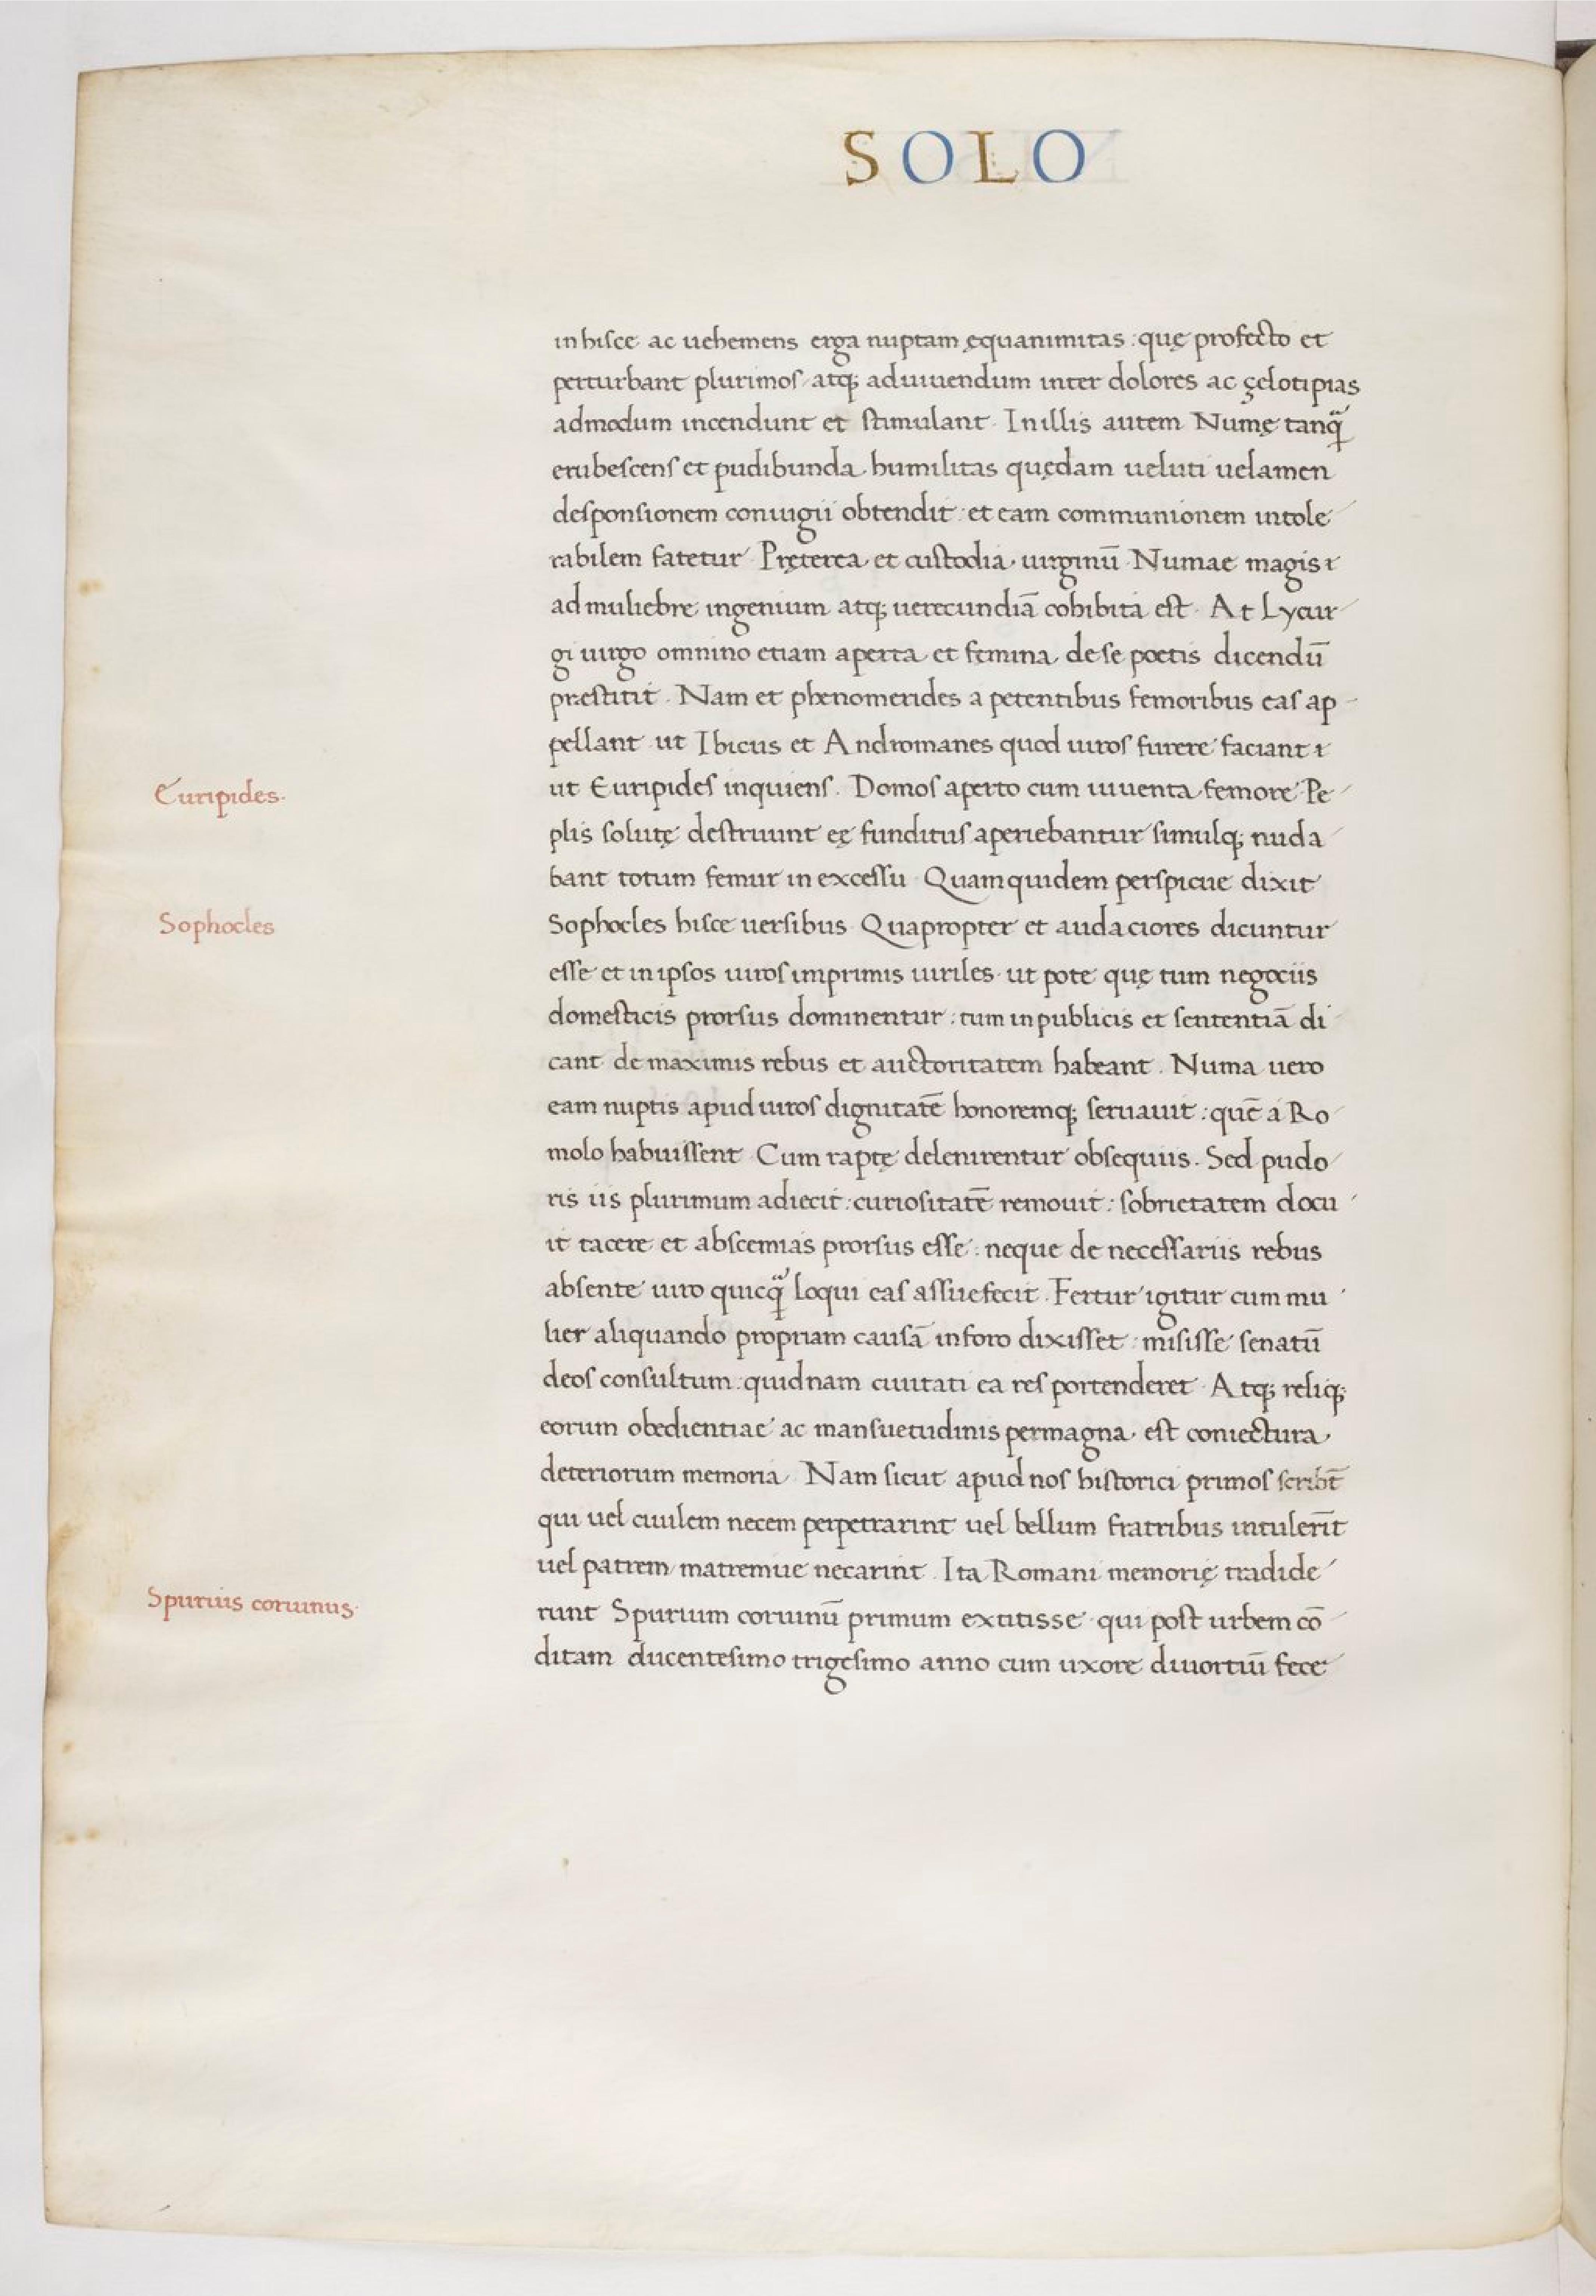 SOLO
in hisce ac uehemens erga nuptam ęquanimitas : quę profecto et
perturbant plurimos atq; aduiuendum inter dolores ac çelotipias
admodum incendunt et stimulant. In illis autem Numę tanq̃
erubescens et pudibunda humilitas quędam ueluti uelamen
desponsionem coniugii obtendit : et eam communionem intole
rabilem fatetur. Pręterea et custodia uirginū Numae magis
ad muliebre ingenium atq; uerecundiā cohibita est. At Lycur
gi uirgo omnino etiam aperta et femina de se poetis dicendū
præstitit. Nam et phenomerides a petentibus femoribus eas ap
pellant ut Ibicus et Andromanes quod uiros furere faciant
Euripides.
ut Euripides inquiens. Domos aperto cum iuuenta femore Pe
plis solutę destruunt eę funditus aperiebantur simulq; nuda
bant totum femur in excessu. Quam quidem perspicue dixit
Sophocles
Sophocles hisce uersibus. Quapropter et audaciores dicuntur
esse et in ipsos uiros imprimis uiriles ut pote quę tum negociis
domesticis prorsus dominentur : tum in publicis et sententiā di
cant de maximis rebus et auctoritatem habeant. Numa uero
eam nuptis apud uiros dignitatē honoremq; seruauit : quē a Ro
molo habuissent. Cum raptę delenirentur obsequiis. Sed pudo
ris iis plurimum adiecit : curiositatē remouit : sobrietatem docu
it tacere et abscemias prorsus esse : neque de necessariis rebus
absente uiro quicq̃ loqui eas assuefecit. Fertur igitur cum mu
lier aliquando propriam causā in foro dixisset : misisse senatū
deos consultum : quidnam ciuitati ea res portenderet. Atq; reliq;
eorum obedientiae ac mansuetudinis permagna est coniectura
deteriorum memoria. Nam sicut apud nos historici primos scribt̄
qui uel ciuilem necem perpetrarint uel bellum fratribus intulerīt
uel patrem matremue necarint. Ita Romani memorię tradide
Spurius coruinus.
runt Spurium coruinū primum extitisse qui post urbem cō
ditam ducentesimo trigesimo anno cum uxore diuortiū fece